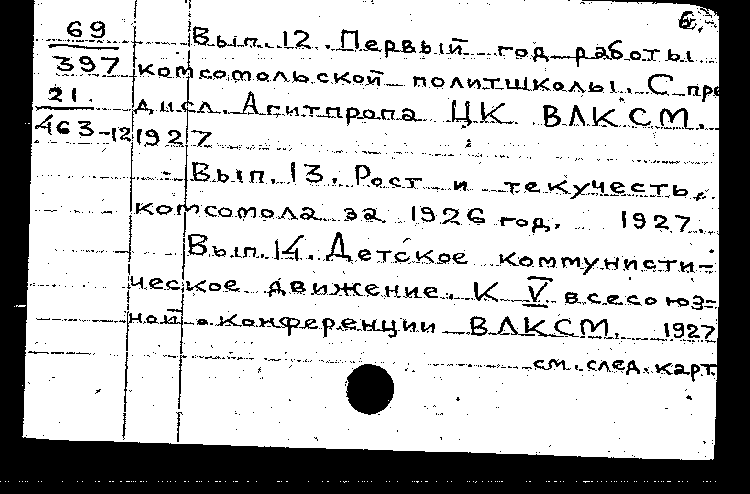 6.
69 Вып. 12. Первый год работы
397 комсомольской политшколы. С пре
21. дисл. Агитпропа ЦК ВЛКСМ.
463-12 1927
Вып. 13. Рост и текучесть
комсомола за 1926 год. 1927.
Вып. 14. Детское коммунисти-
ческое движение. К V всесоюз=
ной конференции ВЛКСМ. 1927
см. след. карт.